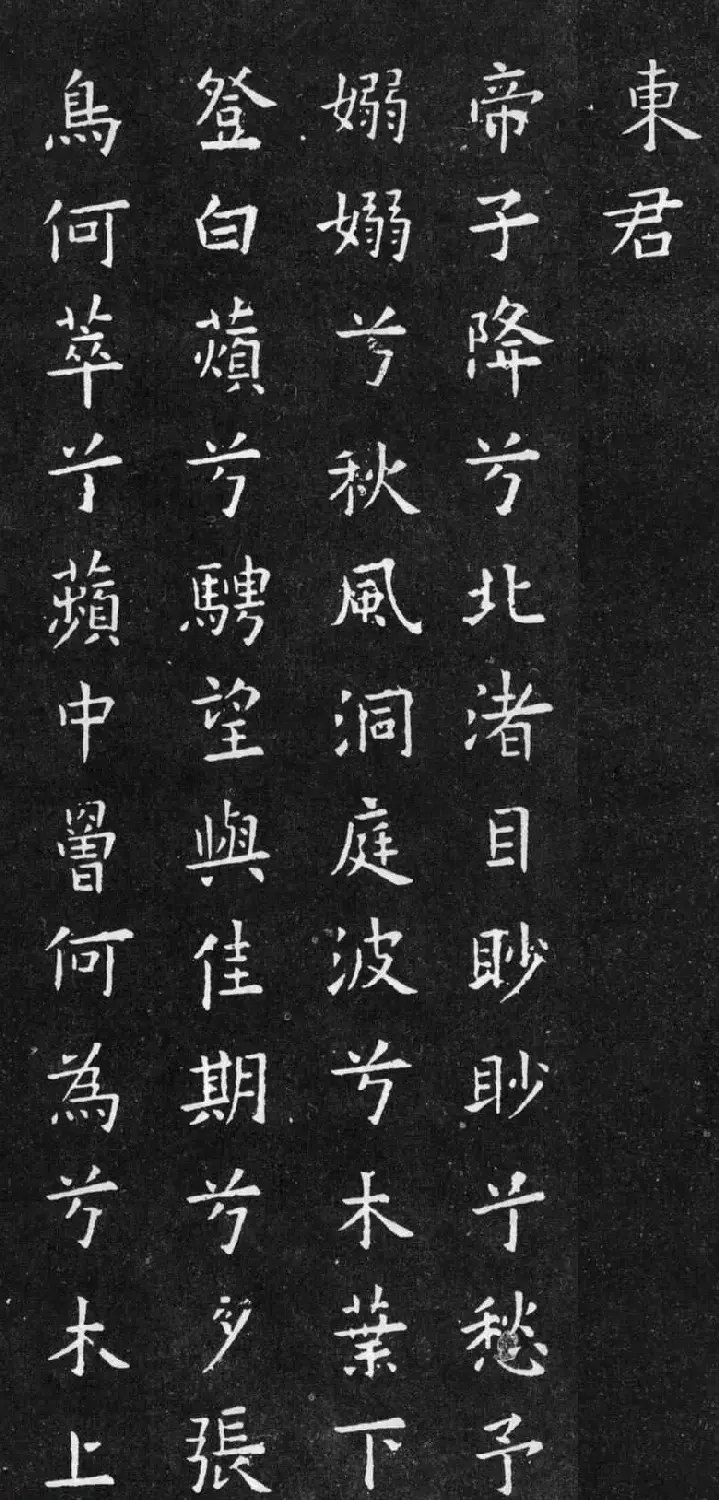 東君
帝子降兮北渚目眇眇兮愁予
嫋嫋兮秋風洞庭波兮木葉下
登白薠兮騁望與佳期兮夕張
鳥何萃兮蘋中罾何為兮木上